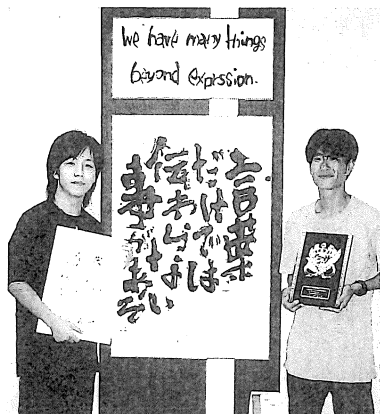 We have many things
beyond exprssion.
言葉
だけでは
伝わらない
事がある